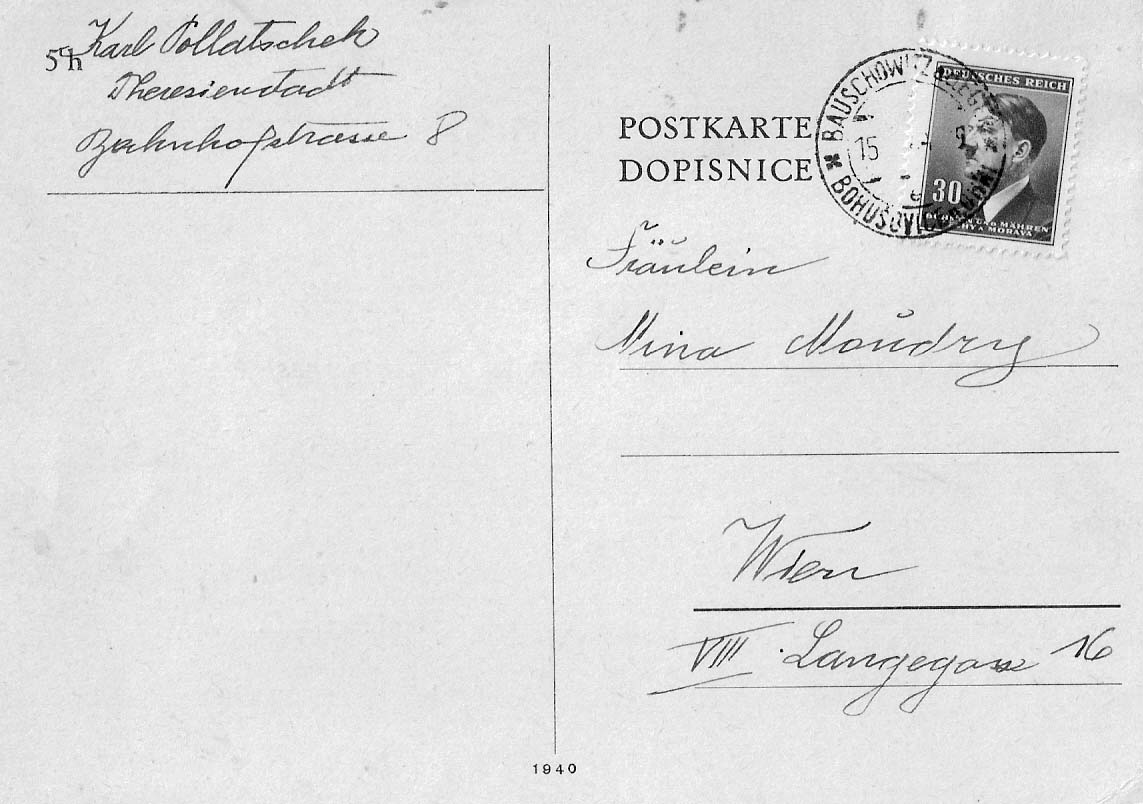 5h Karl Pollatschek
Theresienstadt
Bahnhofstrasse 8
POSTKARTE
DOPISNICE
BAUSCHOWITZ
BOHUŠOVICE
15
DEUTSCHES REICH
30
BÖHMEN UND MÄHREN
ČECHY A MORAVA
Fräulein
Mina Moudry
Wien
VIII. Langegasse 16
1940